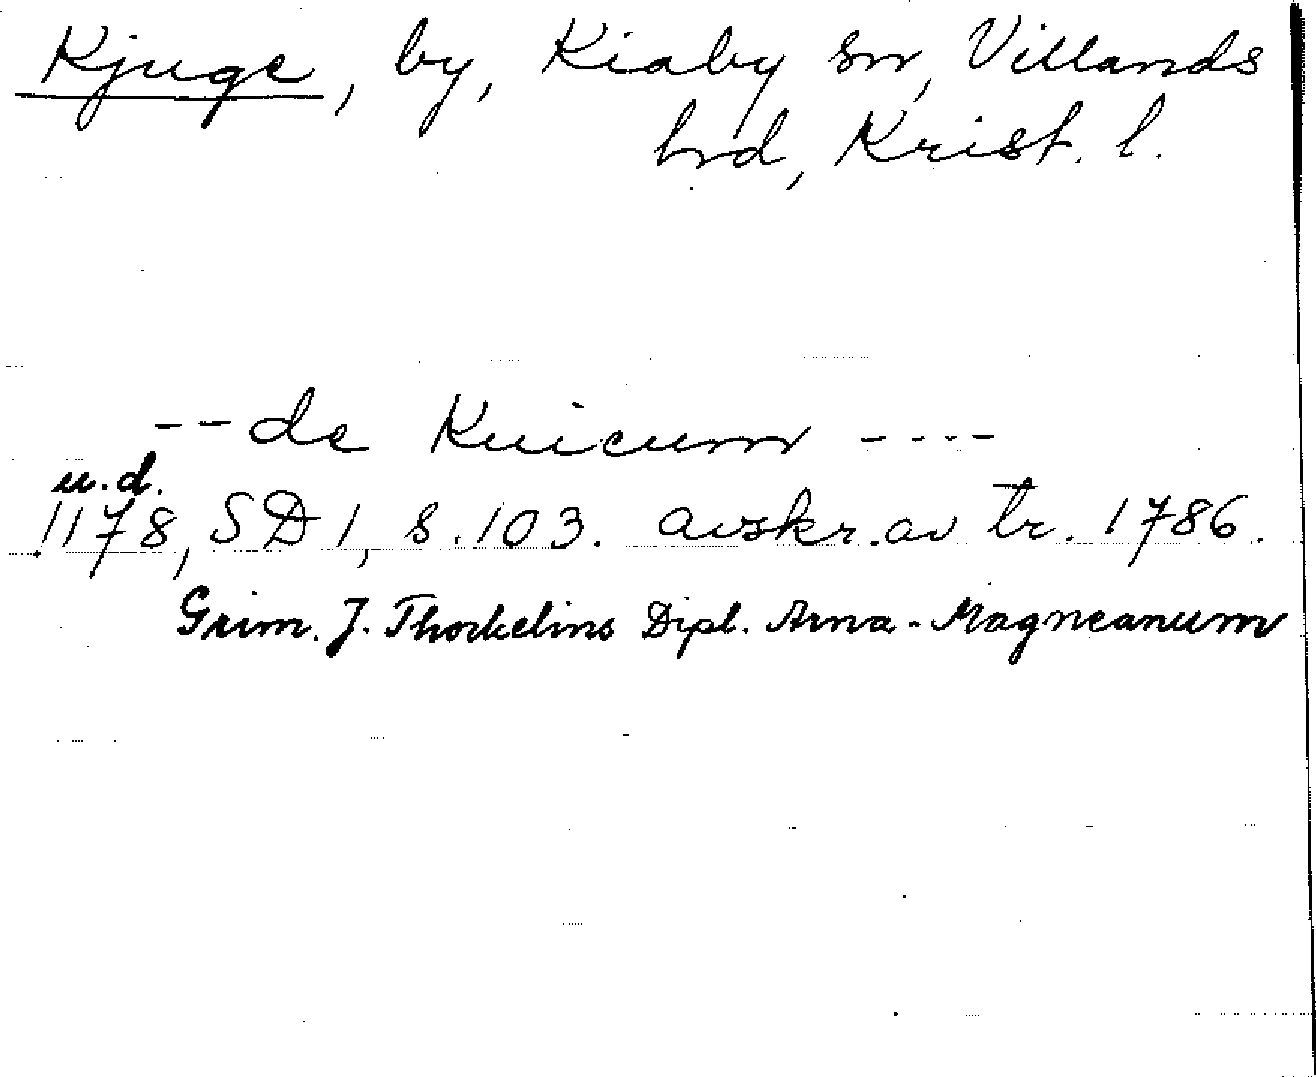 Kjuge, by, Kiaby sn, Villands
hrd, Krist. l.
-- de Kuicum ----
u.d.
1178, SD 1, s. 103. avskr. av tr. 1786.
Grim. J. Thorkelins Dipl. Arna-Magneanum